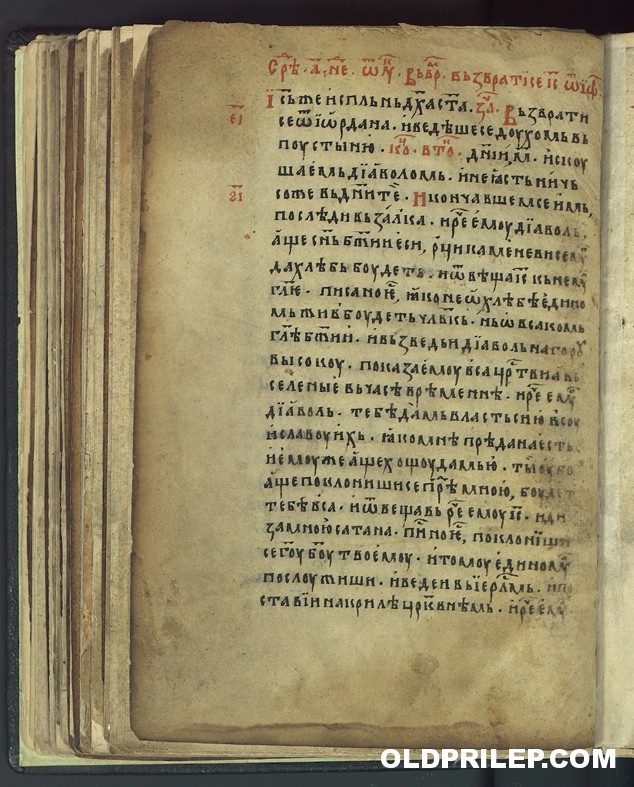 Срѣ· а҃· не҃· ѿ лꙋ· Въ врⷨ· възвратїсе іс҃ ѿ їѡр
Іс҃ъ же испльнь дх҃а ст҃а. за҃. Възврати
е҃ı
се ѿ їѡрдана· и ведѣше се доухомь въ
поустыню· дн҃їи м҃· искоу
шаемь дїаволомь· и не ꙗсть ничь
ѕ҃ı
соже въ дн҃и те· И кончавшем се имь,
послѣди възалка· и рⷱ҇е емоу дїаволь,
аще сн҃ь бж҃ии еси, рци каменеви семꙋ
да хлѣбь боудеть· и ѿвѣща іс҃ кь немꙋ
гл҃ѥ· писано ѥ, ꙗко не ѡ хлѣбѣ едино
мь живь боудеть чл҃вкь· нь ѡ всакомь
гл҃ѣ бж҃ии· и възведь и дїаволь на горꙋ
высокоу· показа емоу вса црⷭ҇твиа въ
селеные въ часѣ врѣменнѣ· и рⷱ҇е емꙋ
дїаволь· тебѣ дамь власть сию всоу
и славоу ихь· ꙗко мнѣ прѣдана есть
и емоуже аще хощоу дамь ю· ты оубо
аще поклониши се прⷣѣ мною, боудет
тебѣ вса· и ѿвещавь рⷱ҇е емоу іс҃· иди
за мною сатана· писано ѥ, поклониши
се го҃у бо҃у твоемоу· и томоу единомꙋ
послоужиши· и веде и вь їерлⷭ҇мь· и по
стави и на крилѣ црк҃внѣмь· и рⷱ҇е емꙋ
OLDPRILEP.COM